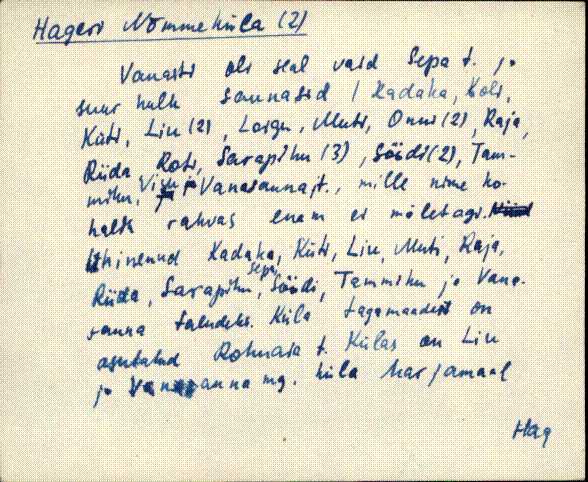 Hageri Nõmmeküla (2)
Vanasti oli seal vaid Sepa t. ja
suur hulk saunasid / Kadaka, Koli,
Küti, Liu (2), Loigu, Muti, Onni (2), Raja,
Rüda Roti, Sarapihu (3), Söödi (2), Tam-
mihu, ja Vanasauna jt., mille nime ko-
halik rahvas enam ei mäletagi.
Ühinenud Kadaka, Küti, Liu, Muti, Raja,
Rüda, Sarapihu, Sepa, Söödi, Tammihu ja Vana-
sauna taludeks. Küla tagamaadest on
asutatud Rohuaia t. Külas on Liu
ja Vanasauna mg. küla harjamaal
Hag